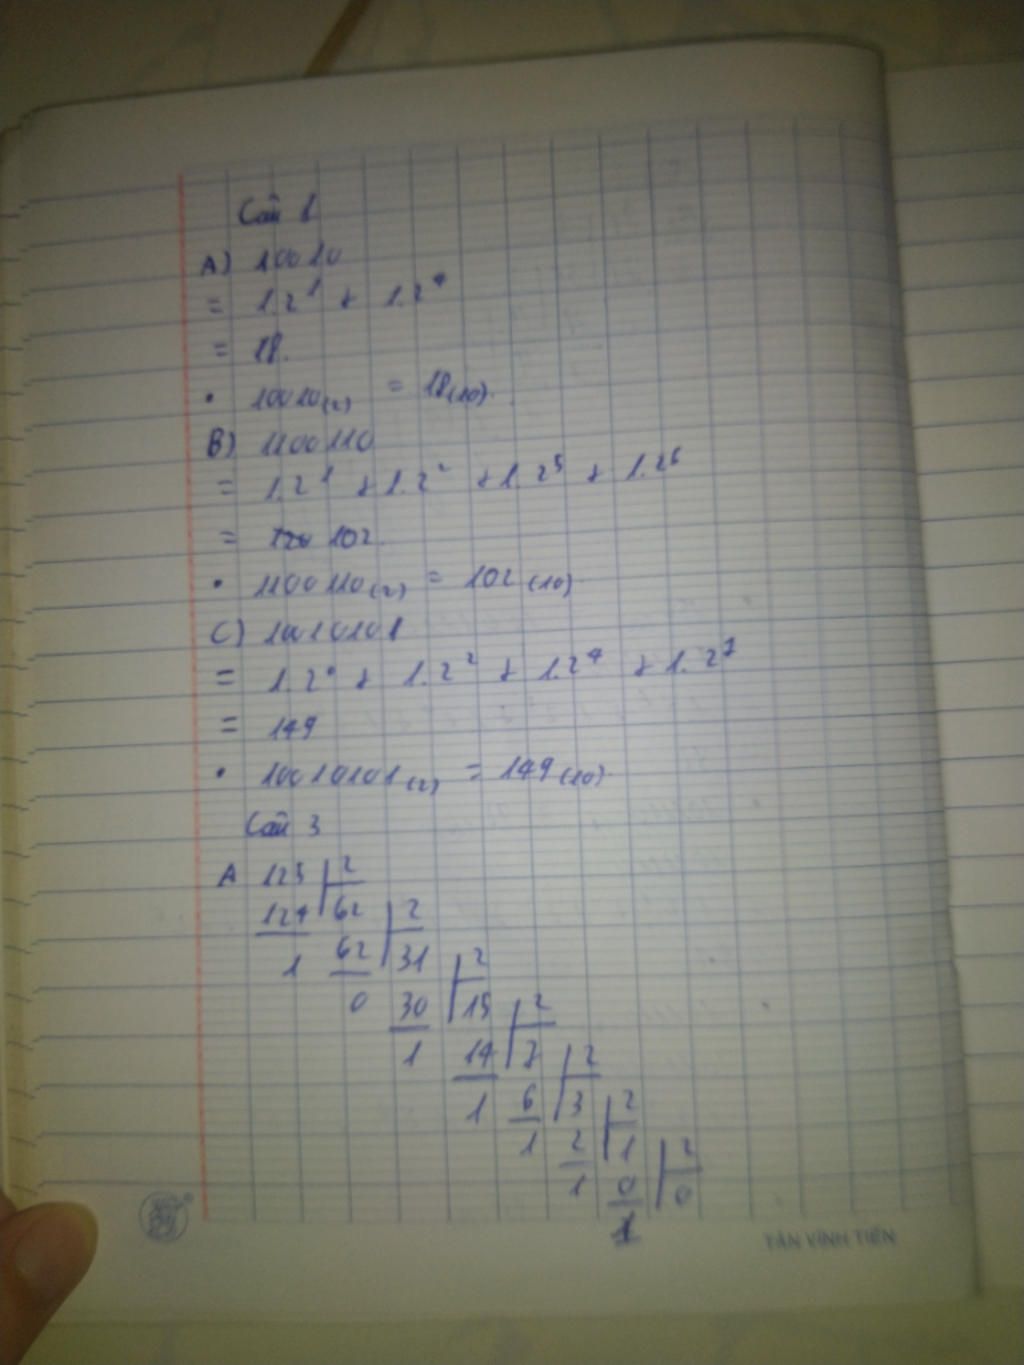 Câu 1
A) 10010
= 1.2¹ + 1.2⁴
= 18.
• 10010₍₂₎ = 18₍₁₀₎.
B) 1100110
= 1.2¹ + 1.2² + 1.2⁵ + 1.2⁶
= 102
• 1100110₍₂₎ = 102₍₁₀₎.
C) 10010101
= 1.2⁰ + 1.2² + 1.2⁴ + 1.2⁷
= 149
• 10010101₍₂₎ = 149₍₁₀₎.
Câu 3
A 125 2
124 62 2
1 62 31 2
0 30 15 2
1 14 7 2
1 6 3 2
1 2 1 2
1 0 0
1
TÂN VĨNH TIẾN